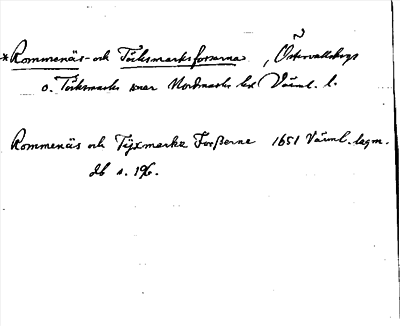 *Rommenäs- och Töcksmarksforsarna, Östervallskogs
o. Töcksmarks snar Nordmarks hd Värml. l.
Rommenäs och Tyxmarke Forßerne 1651 Värml. lagm.
db s. 196.